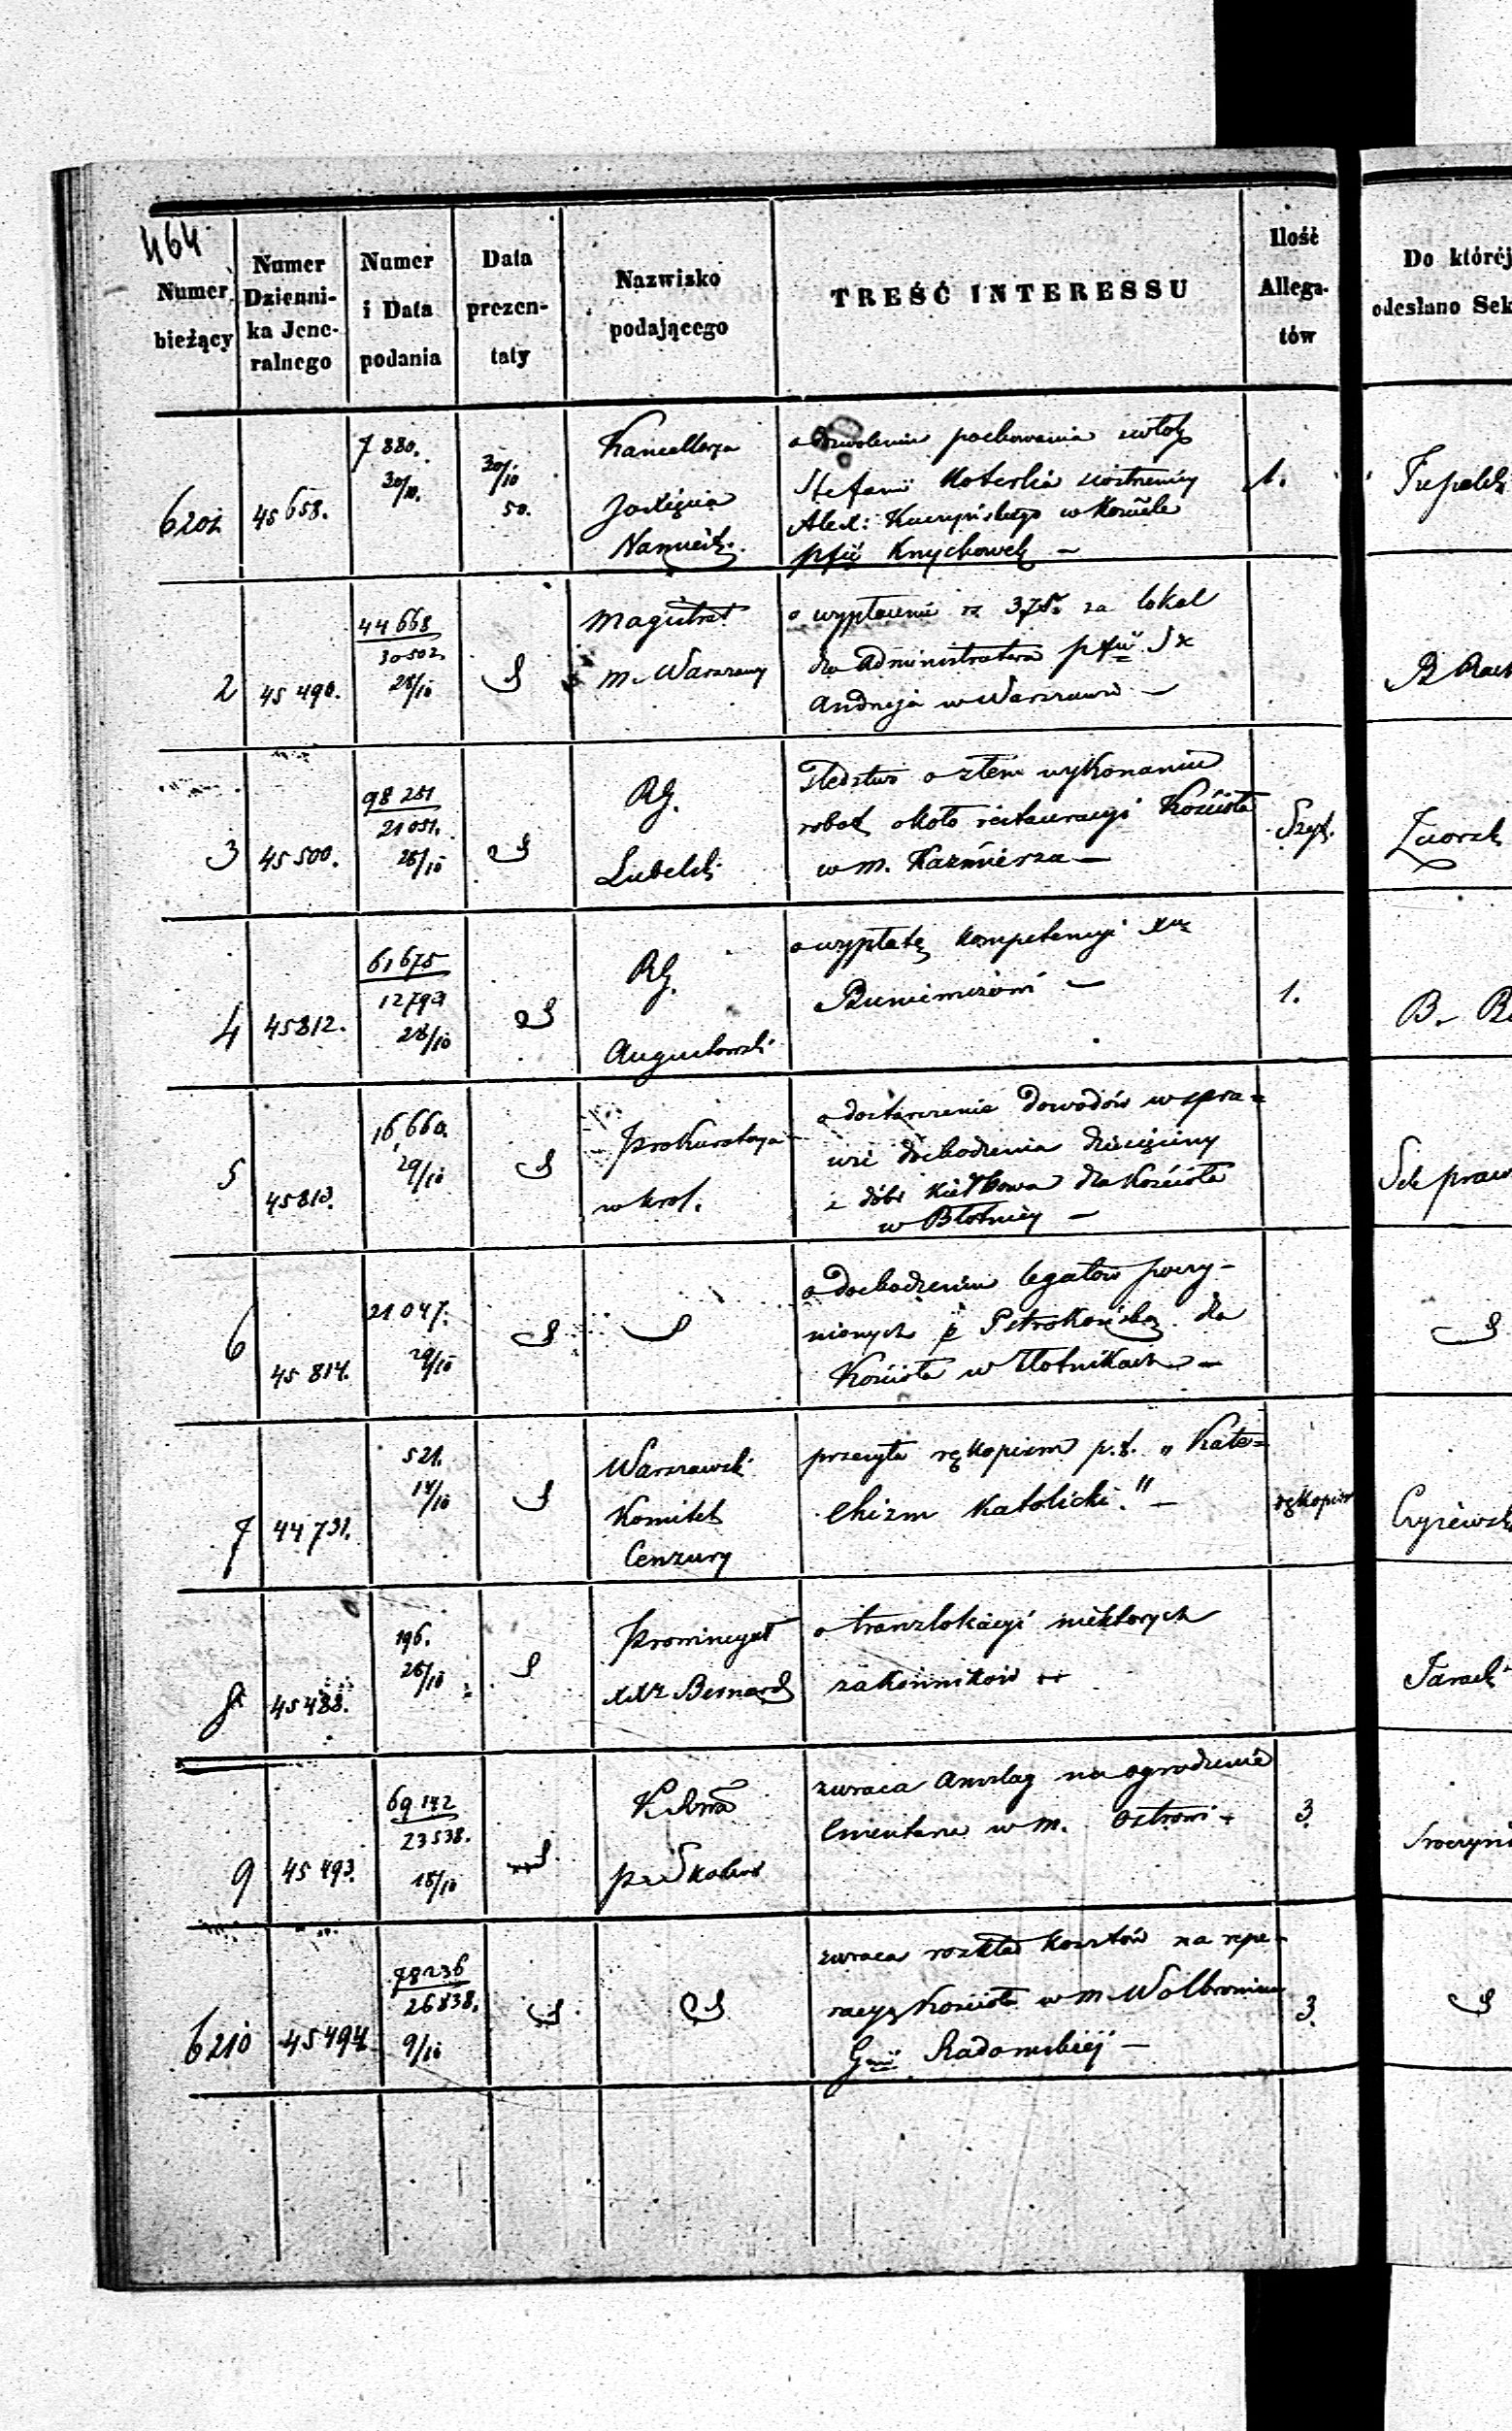 464
Numer bieżący
Numer Dzienni-ka Jene-ralnego
Numer i Data podania
Data prezen-taty
Nazwisko podającego
TREŚĆ INTERESSU
Ilość Allega-tów
Do której
odesłano Sek
6201 45658. 7880. 30/10. 30/10 50.
Kancellarya
Xięcia
Namiest.
o dozwolenie pochowania zwłok
Stefanii siostrzenicy
Alex: Kuczyńskiego w Kościele
pfii Knychowek —
1.
2 45490. 44668 30502. 28/10
Magistrat
m. Warszawy
o wypłacenie rs 375. za lokal
dla Administratora pfii Sx
Andrzeja w Warszawie —
3 45500. 98251 21051. 28/10
RG.
Lubelski
Śledztwo o złem wykonaniu
robot około restauracyi Kościoła
w m. Kazimierza —
4 45812. 61675 28/10
RG.
Augustowski
o wypłatę kompetencyi
1.
B.
5 45813. 16,660. 29/10
Prokuratorya
w Krol.
o dostarczenie dowodów w spra=
wie dochodzenia dziesięciny
z dóbr dla Kościoła
w Błotnicy —
Sek praw
6 45814. 21047. 29/10
o dochodzeniu legatów poczy-
nionych p Pstrokońską dla
Kościoła w
7 44731. 521. 14/10
Warszawski
Komitet
Cenzury
przesyła rękopism p.t. „Kate=
chizm Katolicki." —
rękopism
8 45488. 196. 28/10
Prowincyał
XXx Bernard
o translokacyi niektorych
zakonników
9 45493. 69142 23538. 18/10
zwraca Anszlag na ogrodzenie
Cmentarza w m. Ostrowi
3.
6210 45494 78236 26838. 9/10
zwraca rozkład kosztów na repe-
racyą Kościoła w m Wolbromiu
Gnii Radomskiej —
3.